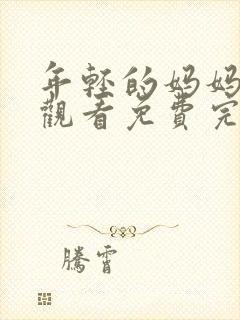 年輕的媽媽
觀看免費完
騰霄